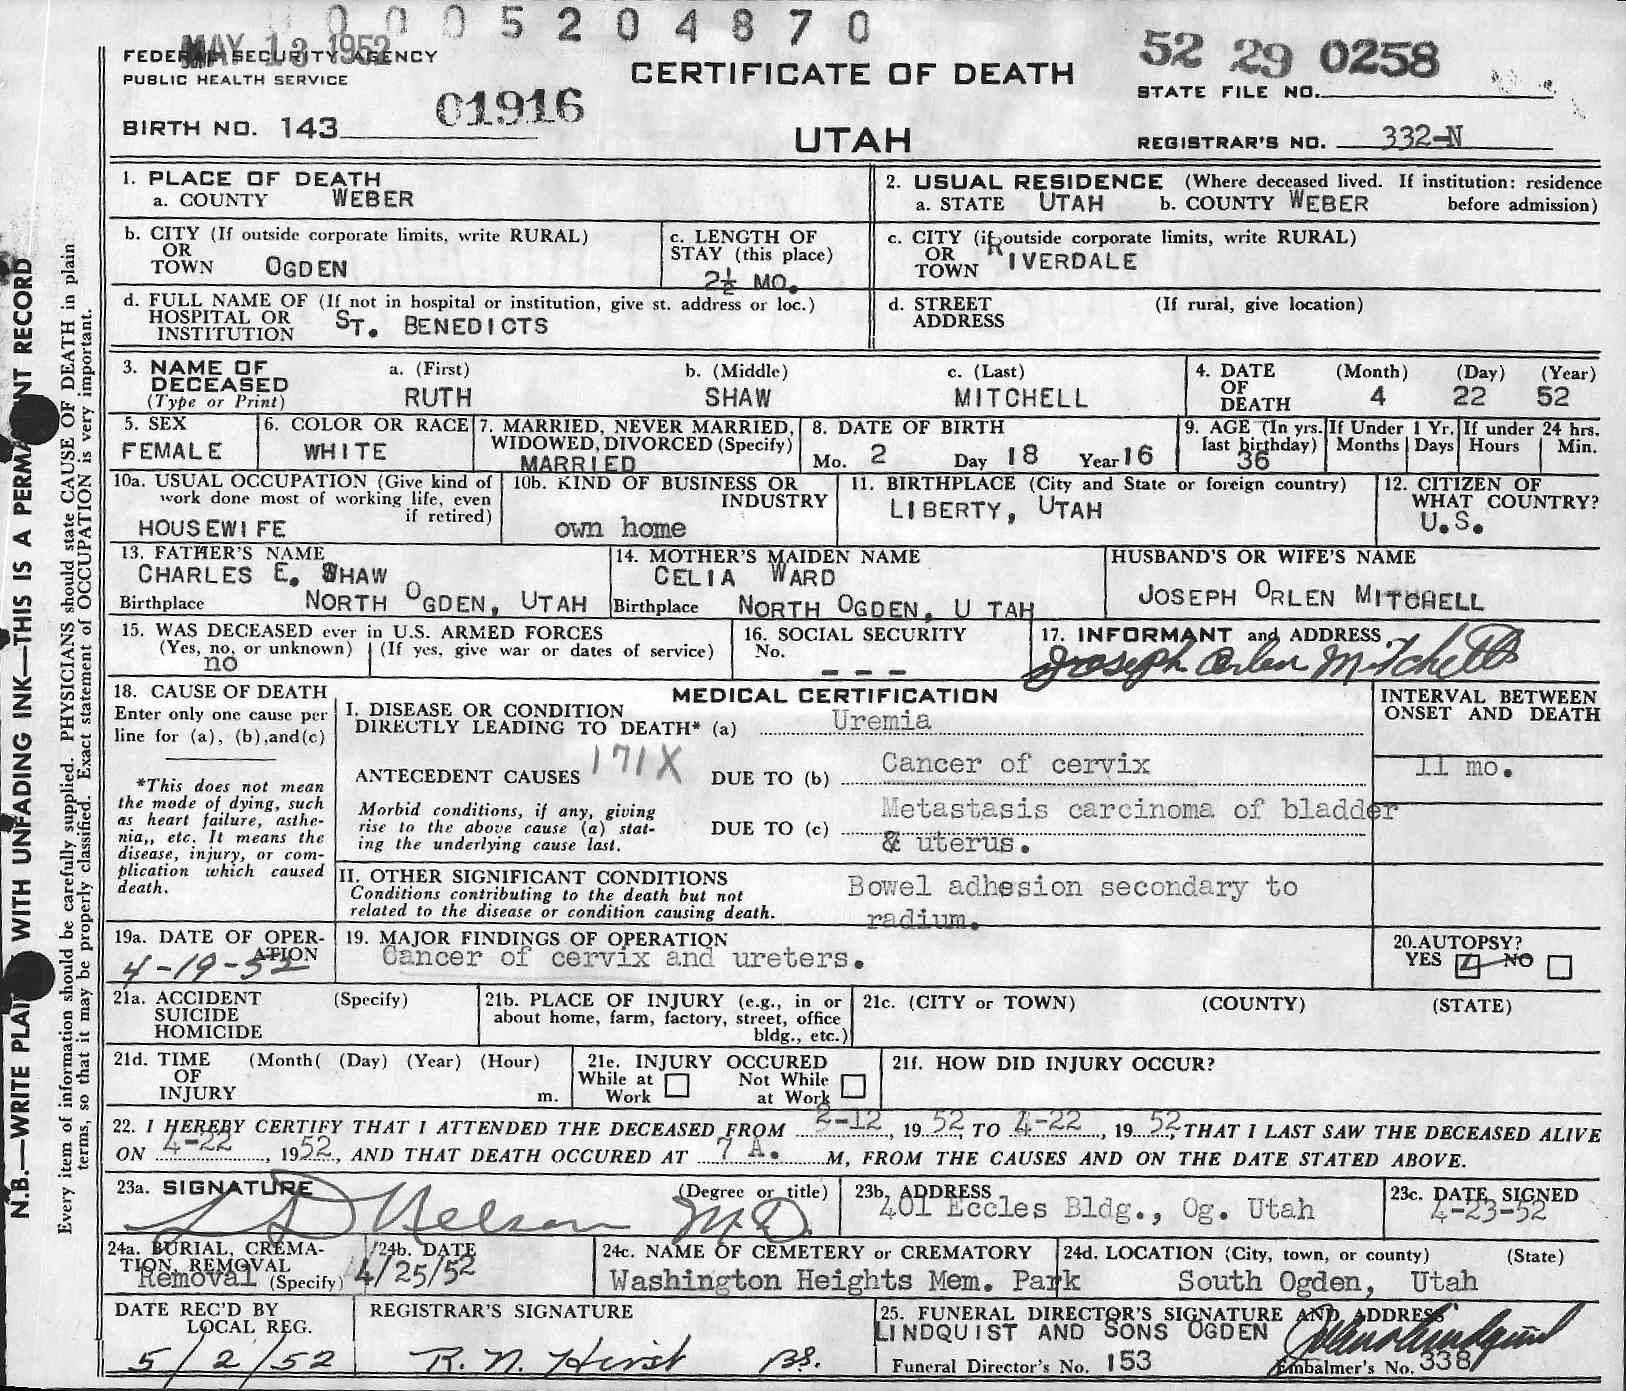 0005204870
MAY 13 1952
FEDERAL SECURITY AGENCY
PUBLIC HEALTH SERVICE
CERTIFICATE OF DEATH
UTAH
52 29 0258
STATE FILE NO.
01916
BIRTH NO. 143
REGISTRAR'S NO. 332-N
1. PLACE OF DEATH
a. COUNTY WEBER
2. USUAL RESIDENCE (Where deceased lived. If institution: residence
a. STATE UTAH b. COUNTY WEBER before admission)
b. CITY (If outside corporate limits, write RURAL)
OR
TOWN OGDEN
c. LENGTH OF
STAY (this place)
2½ MO.
c. CITY (if outside corporate limits, write RURAL)
OR
TOWN RIVERDALE
d. FULL NAME OF (If not in hospital or institution, give st. address or loc.)
HOSPITAL OR
INSTITUTION ST. BENEDICTS
d. STREET (If rural, give location)
ADDRESS
3. NAME OF
DECEASED
(Type or Print)
a. (First)
RUTH
b. (Middle)
SHAW
c. (Last)
MITCHELL
4. DATE
OF
DEATH
(Month) (Day) (Year)
4 22 52
5. SEX
FEMALE
6. COLOR OR RACE
WHITE
7. MARRIED, NEVER MARRIED,
WIDOWED, DIVORCED (Specify)
MARRIED
8. DATE OF BIRTH
Mo. 2 Day 18 Year 16
9. AGE (In yrs.
last birthday)
36
If Under 1 Yr.
Months Days
If under 24 hrs.
Hours Min.
10a. USUAL OCCUPATION (Give kind of
work done most of working life, even
if retired)
HOUSEWIFE
10b. KIND OF BUSINESS OR
INDUSTRY
own home
11. BIRTHPLACE (City and State or foreign country)
LIBERTY, UTAH
12. CITIZEN OF
WHAT COUNTRY?
U.S.
13. FATHER'S NAME
CHARLES E. SHAW
Birthplace NORTH OGDEN, UTAH
14. MOTHER'S MAIDEN NAME
CELIA WARD
Birthplace NORTH OGDEN, U TAH
HUSBAND'S OR WIFE'S NAME
JOSEPH ORLEN MITCHELL
15. WAS DECEASED ever in U.S. ARMED FORCES
(Yes, no, or unknown) (If yes, give war or dates of service)
no
16. SOCIAL SECURITY
No.
- - -
17. INFORMANT and ADDRESS
Joseph Orlen Mitchell
18. CAUSE OF DEATH
Enter only one cause per
line for (a), (b), and (c)
*This does not mean
the mode of dying, such
as heart failure, asthe-
nia,, etc. It means the
disease, injury, or com-
plication which caused
death.
MEDICAL CERTIFICATION
I. DISEASE OR CONDITION
DIRECTLY LEADING TO DEATH* (a) Uremia
171X
ANTECEDENT CAUSES DUE TO (b) Cancer of cervix
Morbid conditions, if any, giving
rise to the above cause (a) stat-
ing the underlying cause last.
DUE TO (c) Metastasis carcinoma of bladder
& uterus.
INTERVAL BETWEEN
ONSET AND DEATH
11 mo.
II. OTHER SIGNIFICANT CONDITIONS
Conditions contributing to the death but not
related to the disease or condition causing death.
Bowel adhesion secondary to
radium.
19a. DATE OF OPER-
ATION
4-19-52
19. MAJOR FINDINGS OF OPERATION
Cancer of cervix and ureters.
20. AUTOPSY?
YES NO
21a. ACCIDENT (Specify)
SUICIDE
HOMICIDE
21b. PLACE OF INJURY (e.g., in or
about home, farm, factory, street, office
bldg., etc.)
21c. (CITY or TOWN) (COUNTY) (STATE)
21d. TIME (Month( (Day) (Year) (Hour)
OF
INJURY m.
21e. INJURY OCCURED
While at Not While
Work at Work
21f. HOW DID INJURY OCCUR?
22. I HEREBY CERTIFY THAT I ATTENDED THE DECEASED FROM 2-12, 1952, TO 4-22, 1952, THAT I LAST SAW THE DECEASED ALIVE
ON 4-22, 1952, AND THAT DEATH OCCURED AT 7 A. M, FROM THE CAUSES AND ON THE DATE STATED ABOVE.
23a. SIGNATURE (Degree or title)
L D Nelson M.D.
23b. ADDRESS
401 Eccles Bldg., Og. Utah
23c. DATE SIGNED
4-23-52
24a. BURIAL, CREMA-
TION, REMOVAL
Removal (Specify)
24b. DATE
4/25/52
24c. NAME OF CEMETERY or CREMATORY
Washington Heights Mem. Park
24d. LOCATION (City, town, or county) (State)
South Ogden, Utah
DATE REC'D BY
LOCAL REG.
5/2/52
REGISTRAR'S SIGNATURE
R. N. Hirst Bs.
25. FUNERAL DIRECTOR'S SIGNATURE AND ADDRESS
LINDQUIST AND SONS OGDEN
Funeral Director's No. 153
Embalmer's No. 338
N.B.—WRITE PLAINLY WITH UNFADING INK—THIS IS A PERMANENT RECORD
Every item of information should be carefully supplied. PHYSICIANS should state CAUSE OF DEATH in plain
terms, so that it may be properly classified. Exact statement of OCCUPATION is very important.